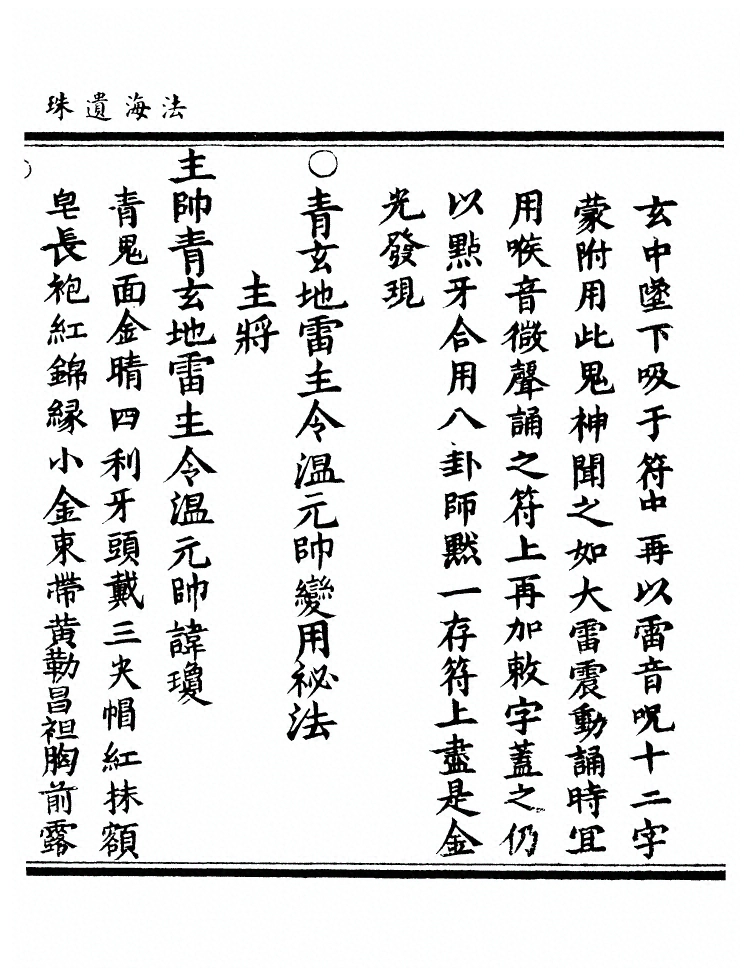 法海遺珠
玄中墜下吸于符中再以雷音呪十二字
蒙附用此鬼神聞之如大雷震動誦時冝
用喉音微聲誦之符上再加敕字蓋之仍
以點牙合用八卦師黙一存符上盡是金
光發現
○青玄地雷主令溫元帥變用祕法
主將
主帥青玄地雷主令溫元帥諱瓊
青鬼面金晴四利牙頭戴三尖帽紅抹額
皂長袍紅錦緣小金束帶黃勒昌袒胸前露